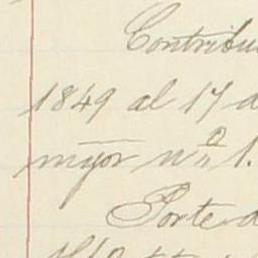 Contribu
1849 al 17 d
mayor nº 1.
Porte d